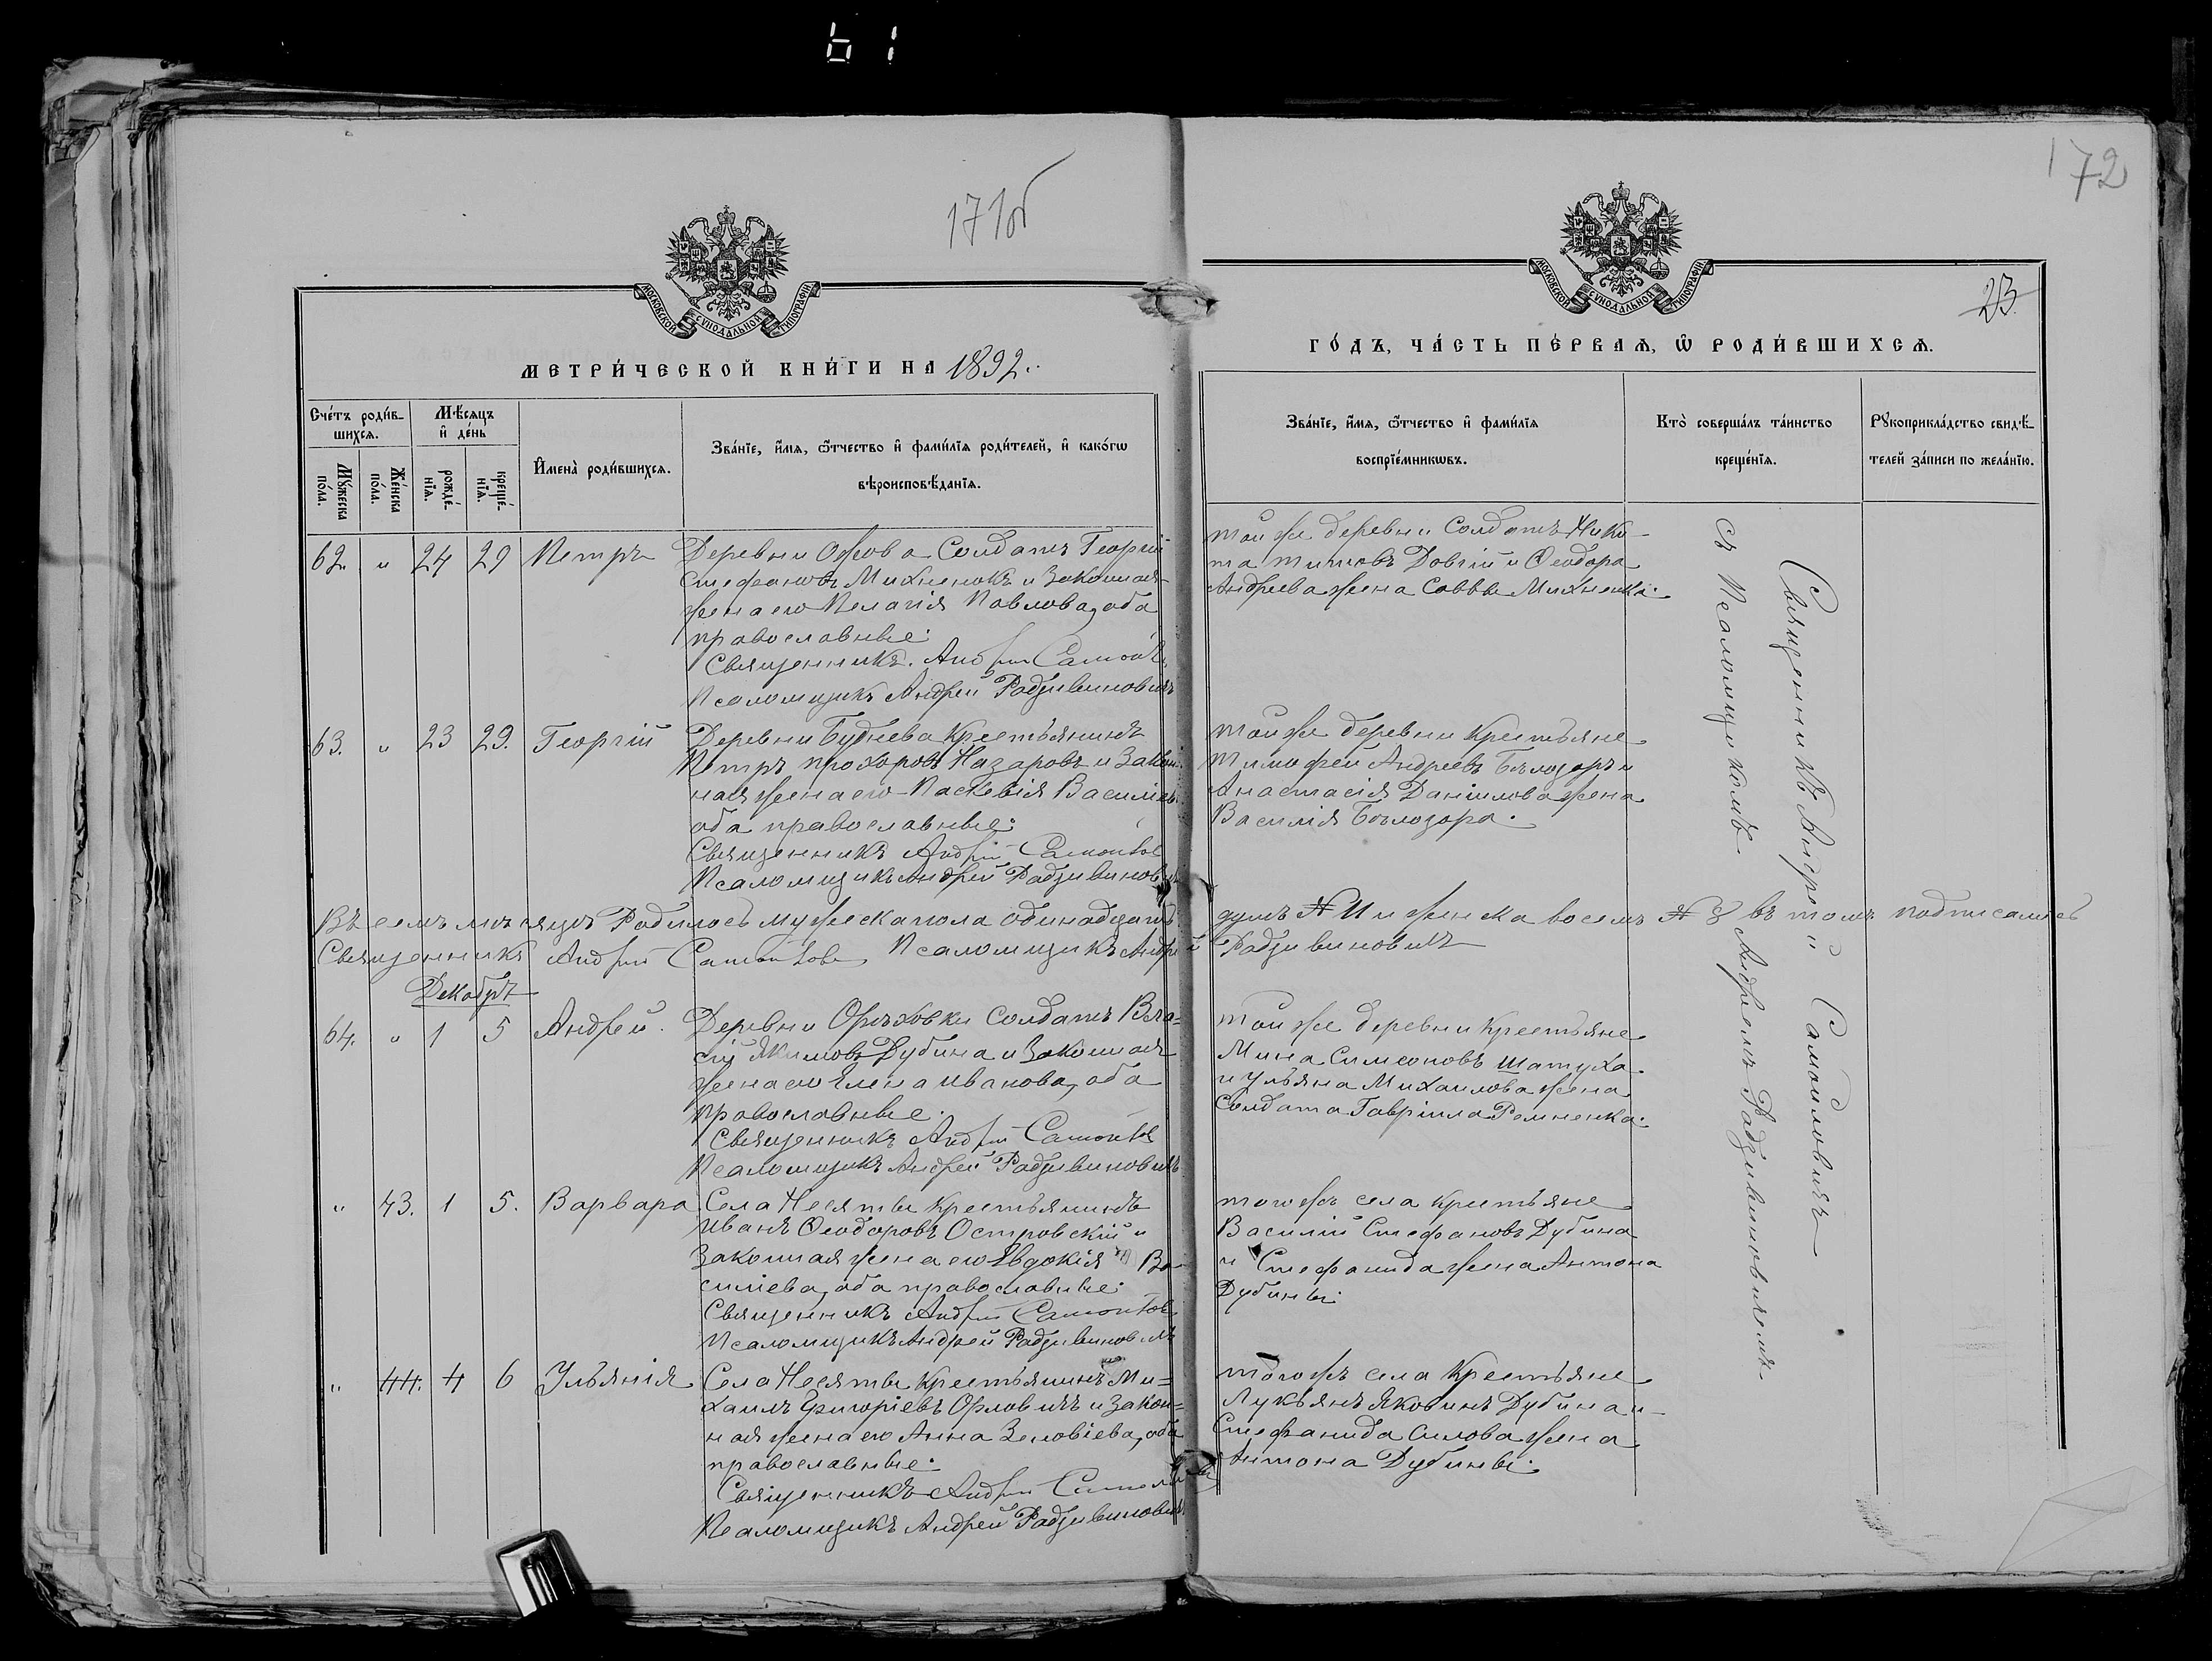 61
171об
172
23
МОСКОВСКОЙ СѴНОДАЛЬНОЙ ТИПОГРАФІИ
МОСКОВСКОЙ СѴНОДАЛЬНОЙ ТИПОГРАФІИ
МЕТРИ́ЧЕСКОЙ КНИ́ГИ НА 1892.
ГО́ДЪ, ЧА́СТЬ ПЕ́РВАѦ, Ѿ РОДИ́ВШИХСѦ.
Сче́тъ роди́в-
шихсѧ.
Мѣ́сѧцъ
и҆ де́нь
Мꙋ́жеска
по́ла.
Же́нска
по́ла.
рожде́-
нїѧ.
креще́-
нїѧ.
И҆мена̀ роди́вшихсѧ.
Зва́нїе, и҆́мѧ, ѻ҆́тчество и҆ фами́лїѧ роди́телей, и҆ како́гѡ
вѣроисповѣ́данїѧ.
Зва́нїе, и҆́мѧ, ѻ҆́тчество и҆ фами́лїѧ
воспрїе́мникѡвъ.
Кто̀ соверша́лъ та́инство
креще́нїѧ.
Рꙋкоприкла́дство свидѣ́-
телей за́писи по жела́нїю.
62. " 24 29 Петръ
Деревни Офова Солдатъ Георгій
Стефановъ Михненокъ и Законная
жена его Пелагія Павлова, оба
православные.
Священникъ Андрей
Псаломщикъ Андрей Радзивиновичъ
той же деревни Солдатъ Ники-
та Титовъ Довгій и Ѳеодора
Андреева жена Саввы Михненка.
63. " 23 29. Георгій
Деревни Буднева Крестьянинъ
Петръ Прохоровъ Назаровъ и Закон-
ная жена его Паскевія Василіева
оба православные.
Священникъ Андрей
Псаломщикъ Андрей Радзивиновичъ
той же деревни Крестьяне
Тимофей Андреевъ Бѣлозоръ и
Анастасія Даніилова жена
Василія Бѣлозора.
Въ семъ мѣсяцѣ Родилось мужеска пола одинадцать душъ # 11 и женска восемъ # 8 въ томъ подписались
Священникъ Андрей Псаломщикъ Андрей Радзивиновичъ
Декабрь
64. " 1 5 Андрей.
Деревни Орѣховки Солдатъ Вла-
сій Якимовъ Дубина и Законная
жена его Елена Иванова, оба
православные.
Священникъ Андрей
Псаломщикъ Андрей Радзивиновичъ
той же деревни Крестьяне
Мина Симеоновъ Шатуха
и Ульяна Михаилова жена
Солдата Гавріила Ремненка.
" 43. 1 5. Варвара
Села Несяты Крестьянинъ
Иванъ Ѳеодоровъ Островскій и
Законная жена его Евдокія Ва-
силіева, оба православные.
Священникъ Андрей
Псаломщикъ Андрей Радзивиновичъ
тогожъ села Крестьяне
Василій Стефановъ Дубина
и Стефанида жена Антона
Дубины.
" 44. 4 6 Ульянія
Села Несяты Крестьянинъ Ми-
хаилъ Григоріевъ Орловичъ и Закон-
ная жена его Анна Зеновіева, оба
православные.
Священникъ Андрей
Псаломщикъ Андрей Радзивиновичъ
тогожъ села Крестьяне
Лукьянъ Яковинъ Дубина и
Стефанида Силова жена
Антона Дубины.
Священникъ Андрей Самойловичъ
съ Псаломщикомъ Андреемъ Радзивиновичемъ